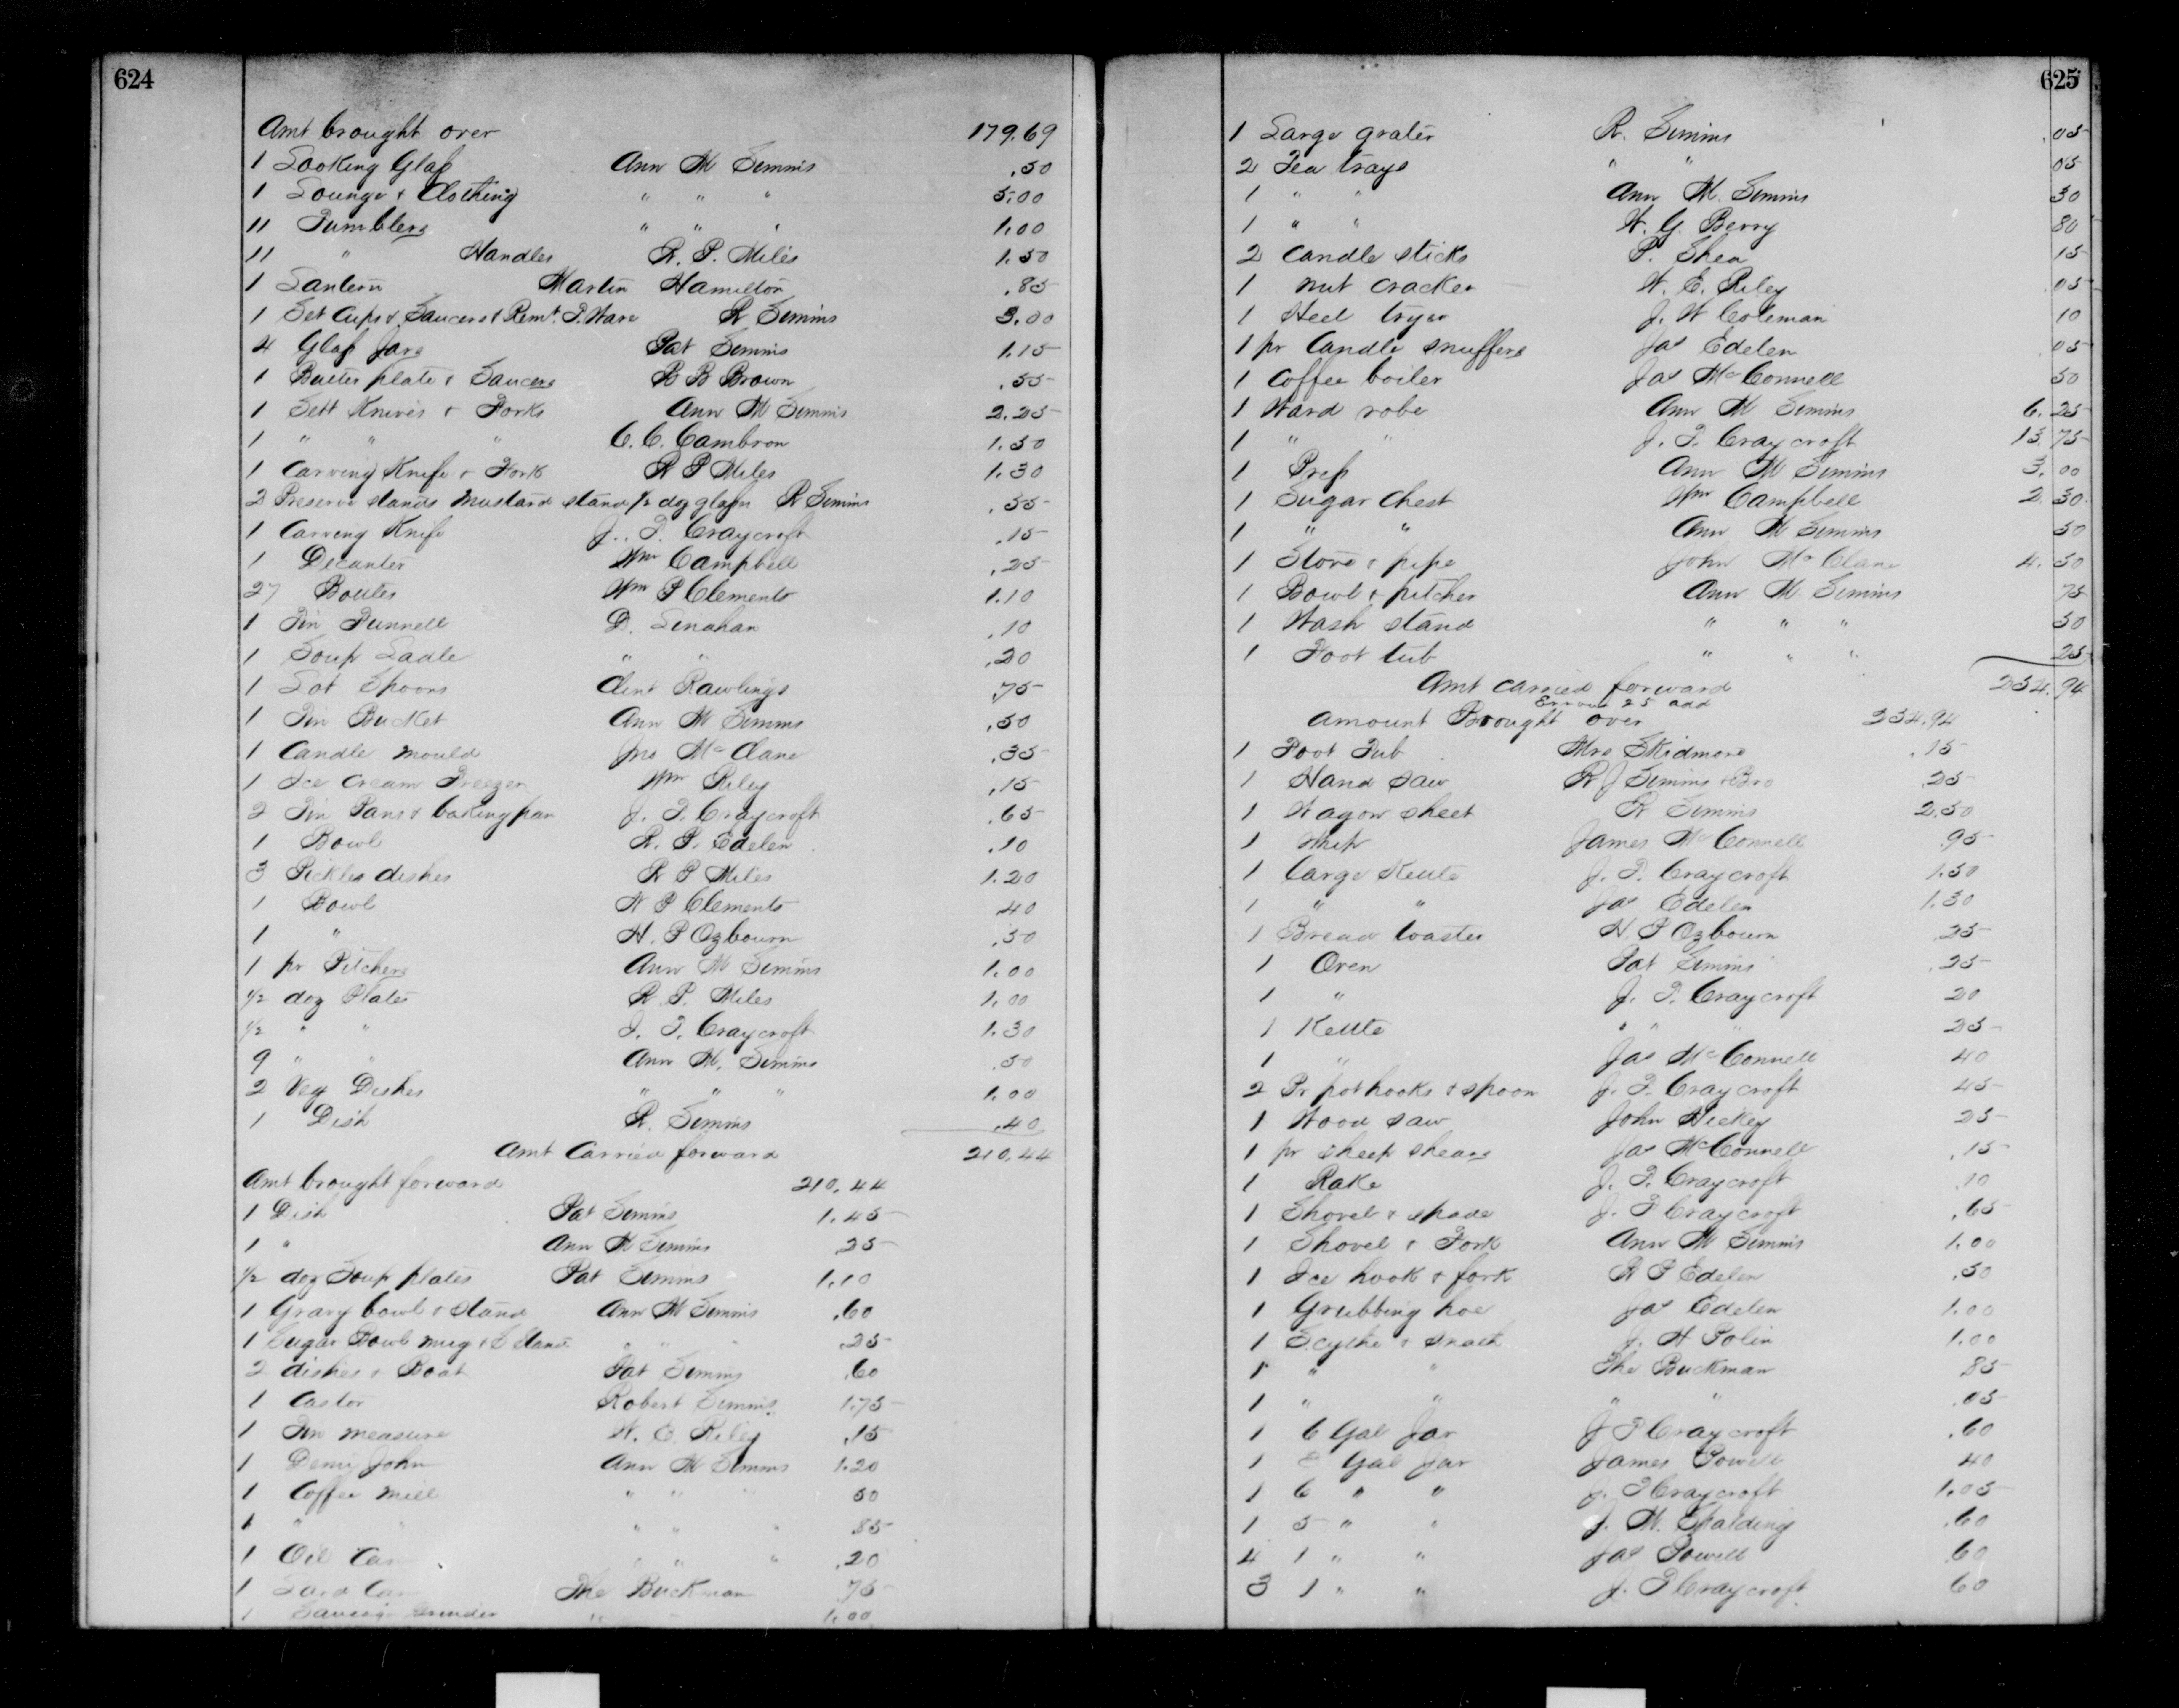 624
Amt brought over 179.69
1 Looking Glass Ann M Simms .50
1 Lounge & Clothing " " " 5.00
11 Tumblers " " " 1.00
11 " Handles R. P. Miles 1.50
1 Lantern Martin Hamilton .85
1 Set Cups & Saucers & Remt. T. Ware R Simms 3.00
4 Glass Jars Pat Simms 1.15
1 Butter plate & Saucers B B Brown .55
1 Sett Knives & Forks Ann M Simms 2.25
1 " " " C. C. Cambron 1.50
1 Carving Knife & Fork R P Miles 1.30
2 Preserve stands Mustard stand 1/2 doz glasses R Simms .55
1 Carving Knife J. T. Craycroft .15
1 Decanter Wm Campbell .25
27 Bottles Wm P Clements 1.10
1 Tin Funnell D. Lenahan .10
1 Soup Ladle " " .20
1 Lot Spoons Clint Rawlings .75
1 Tin Bucket Ann M Simms .50
1 Candle mould Jno McClane .35
1 Ice Cream Freezer Wm Riley .15
2 Tin Pans & baking pan J. T. Craycroft .65
1 Bowl R. P. Edelen .10
3 Pickles dishes R P Miles 1.20
1 Bowl W P Clements 40
1 " H. P Ozbourn .50
1 pr Pitchers Ann M Simms 1.00
1/2 doz Plates R. P. Miles 1.00
1/2 " " J. T. Craycroft 1.30
9 " " Ann M. Simms .50
2 Veg Dishes " " " 1.00
1 Dish R. Simms .40
Amt Carried forward 210.44
Amt brought forward 210.44
1 Dish Pat Simms 1.45
1 " Ann M Simms .25
1/2 doz Soup plates Pat Simms 1.10
1 Gravy bowl & Stand Ann M Simms .60
1 Sugar Bowl mug & S Stand " " " .25
2 dishes & Boat Pat Simms .60
1 Castor Robert Simms 1.75
1 Tin measure W. E. Riley .15
1 Demi John Ann M Simms 1.20
1 Coffee Mill " " " 50
1 " " " " " .85
1 Oil Can " " " .20
1 Lard Can The Buckman .75
1 Sausage Grinder " " 1.00
625
1 Large grater R. Simms .05
2 Tea trays " " 05
1 " " Ann M. Simms 30
1 " " W. G. Berry 80
2 Candle sticks P. Shea 15
1 nut cracker W. E. Riley .05
1 Steel tryer J. W Coleman 10
1 pr Candle snuffers Jas Edelen .05
1 Coffee boiler Jas McConnell 50
1 Ward robe Ann M Simms 6.25
1 " " J. T. Craycroft 13.75
1 Press Ann M Simms 3.00
1 Sugar Chest Wm Campbell 2.30
1 " " Ann M Simms 50
1 Stove & pipe John McClane 4.50
1 Bowl & pitcher Ann M Simms 75
1 Wash stand " " " 50
1 Foot tub " " " 25
Amt carried forward 254.94
Error 25 add
Amount Brought over 254.94
1 Foot Tub Mrs Skidmore .15
1 Hand saw R J Simms & Bro .25
1 Wagon sheet R Simms 2.50
1 Whip James McConnell .95
1 Large Kettle J. T. Craycroft 1.50
1 " " Jas Edelen 1.30
1 Bread toaster H. P Ozbourn .25
1 Oven Pat Simms .25
1 " J. T. Craycroft 20
1 Kettle " " " 25
1 " Jas McConnell 40
2 Pr pot hooks & spoon J. T. Craycroft 45
1 Wood saw John Hickey 25
1 pr sheep shears Jas McConnell .15
1 Rake J. T. Craycroft .10
1 Shovel & spade J. T Craycroft .65
1 Shovel & Fork Ann M Simms 1.00
1 Ice hook & fork R P Edelen .50
1 Grubbing hoe Jas Edelen 1.00
1 Scythe & snath J. H Polin 1.00
1 " " The Buckman 85
1 " " " " .05
1 6 Gal Jar J T Craycroft .60
1 Gal Jar James Powell 40
1 6 " " J. T Craycroft 1.05
1 5 " " J. M. Spalding .60
4 1 " " Jas Powell .60
3 1 " " J. T Craycroft 60